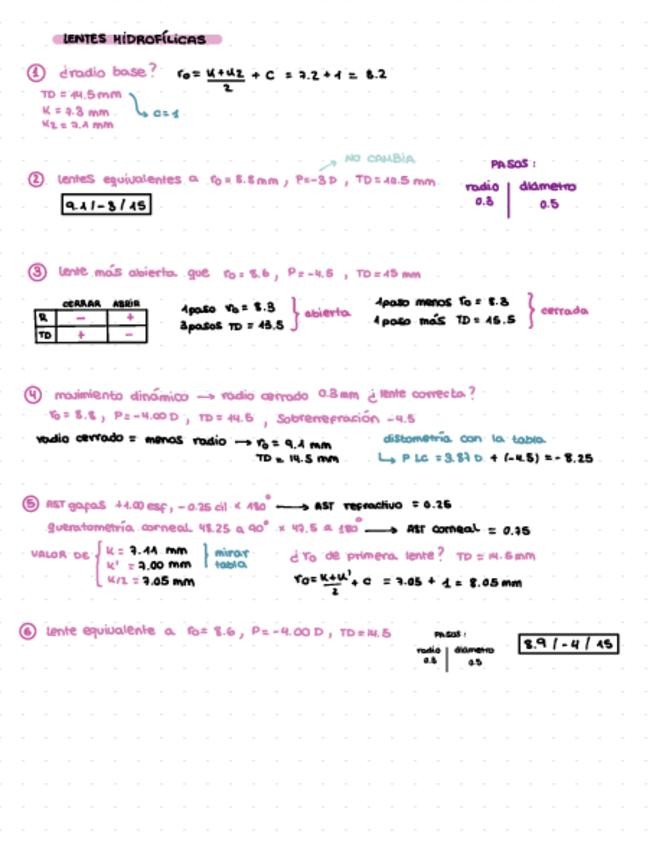 LENTES HIDROFÍLICAS
① ¿radio base? r₀ = K+K2/2 + C = 7.2 + 1 = 8.2
TD = 14.5 mm
K = 7.3 mm
K2 = 7.1 mm
c = 1
NO CAMBIA
② lentes equivalentes a r₀ = 8.8 mm, P = -3 D, TD = 10.5 mm
9.1 / -3 / 15
PASOS:
radio | diámetro
0.3 | 0.5
③ lente más abierta que r₀ = 8.6, P = -4.5, TD = 15 mm
CERRAR ABRIR
R - +
TD + -
1 paso r₀ = 8.3
3 pasos TD = 13.5
abierta
1 paso menos r₀ = 8.3
1 paso más TD = 15.5
cerrada
④ movimiento dinámico → radio cerrado 0.3 mm ¿lente correcta?
r₀ = 8.8, P = -4.00 D, TD = 14.5, Sobrerrefración -4.5
radio cerrado = menos radio → r₀ = 9.1 mm
TD = 14.5 mm
distometría con la tabla
P LC = 3.87 D + (-4.5) = -8.25
⑤ AST gafas +1.00 esf, -0.25 cil x 180° → AST refractivo = 0.25
queratometría corneal 48.25 a 90° x 47.5 a 180° → AST corneal = 0.75
VALOR DE
K = 7.11 mm
K' = 7.00 mm
K/2 = 7.05 mm
mirar tabla
¿r₀ de primera lente? TD = 14.5 mm
r₀ = K+K'/2 + c = 7.05 + 1 = 8.05 mm
⑥ lente equivalente a r₀ = 8.6, P = -4.00 D, TD = 14.5
PASOS:
radio | diámetro
0.3 | 0.5
8.9 / -4 / 15